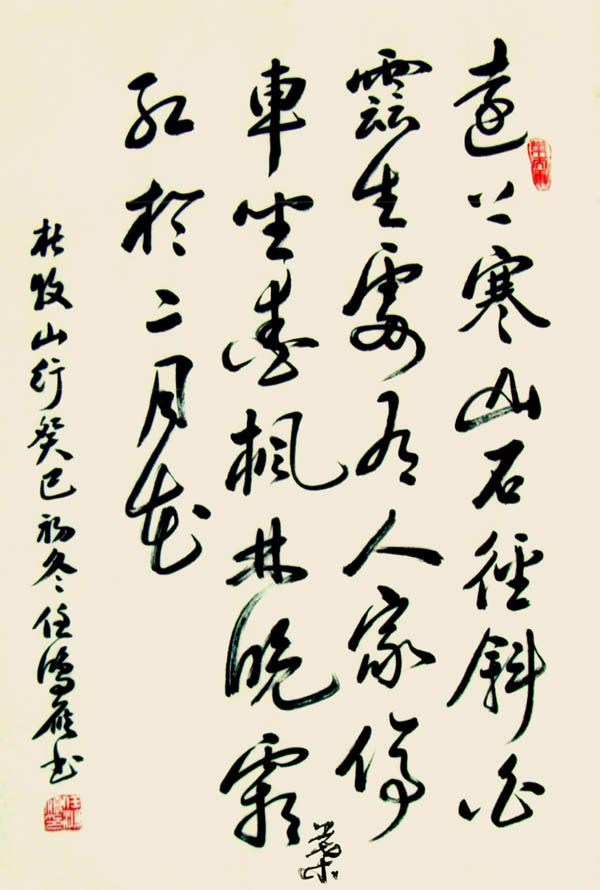 遠上寒山石徑斜白
雲生處有人家停
車坐愛楓林晚霜葉
紅於二月花
杜牧山行癸巳初冬任鴻雁书